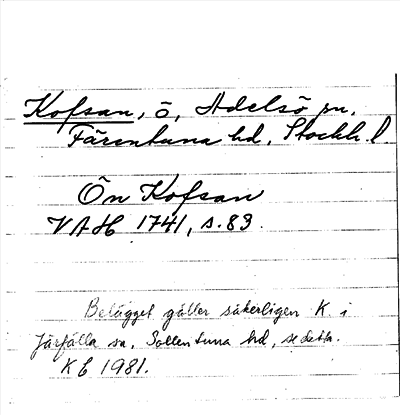 Kofsan, ö, Adelsö sn,
Färentuna hd, Stockh. l.
Ön Kofsan
VAH 1741, s. 83.
Belägget gäller säkerligen K. i
Järfälla sn, Sollentuna hd, se detta.
KE 1981.